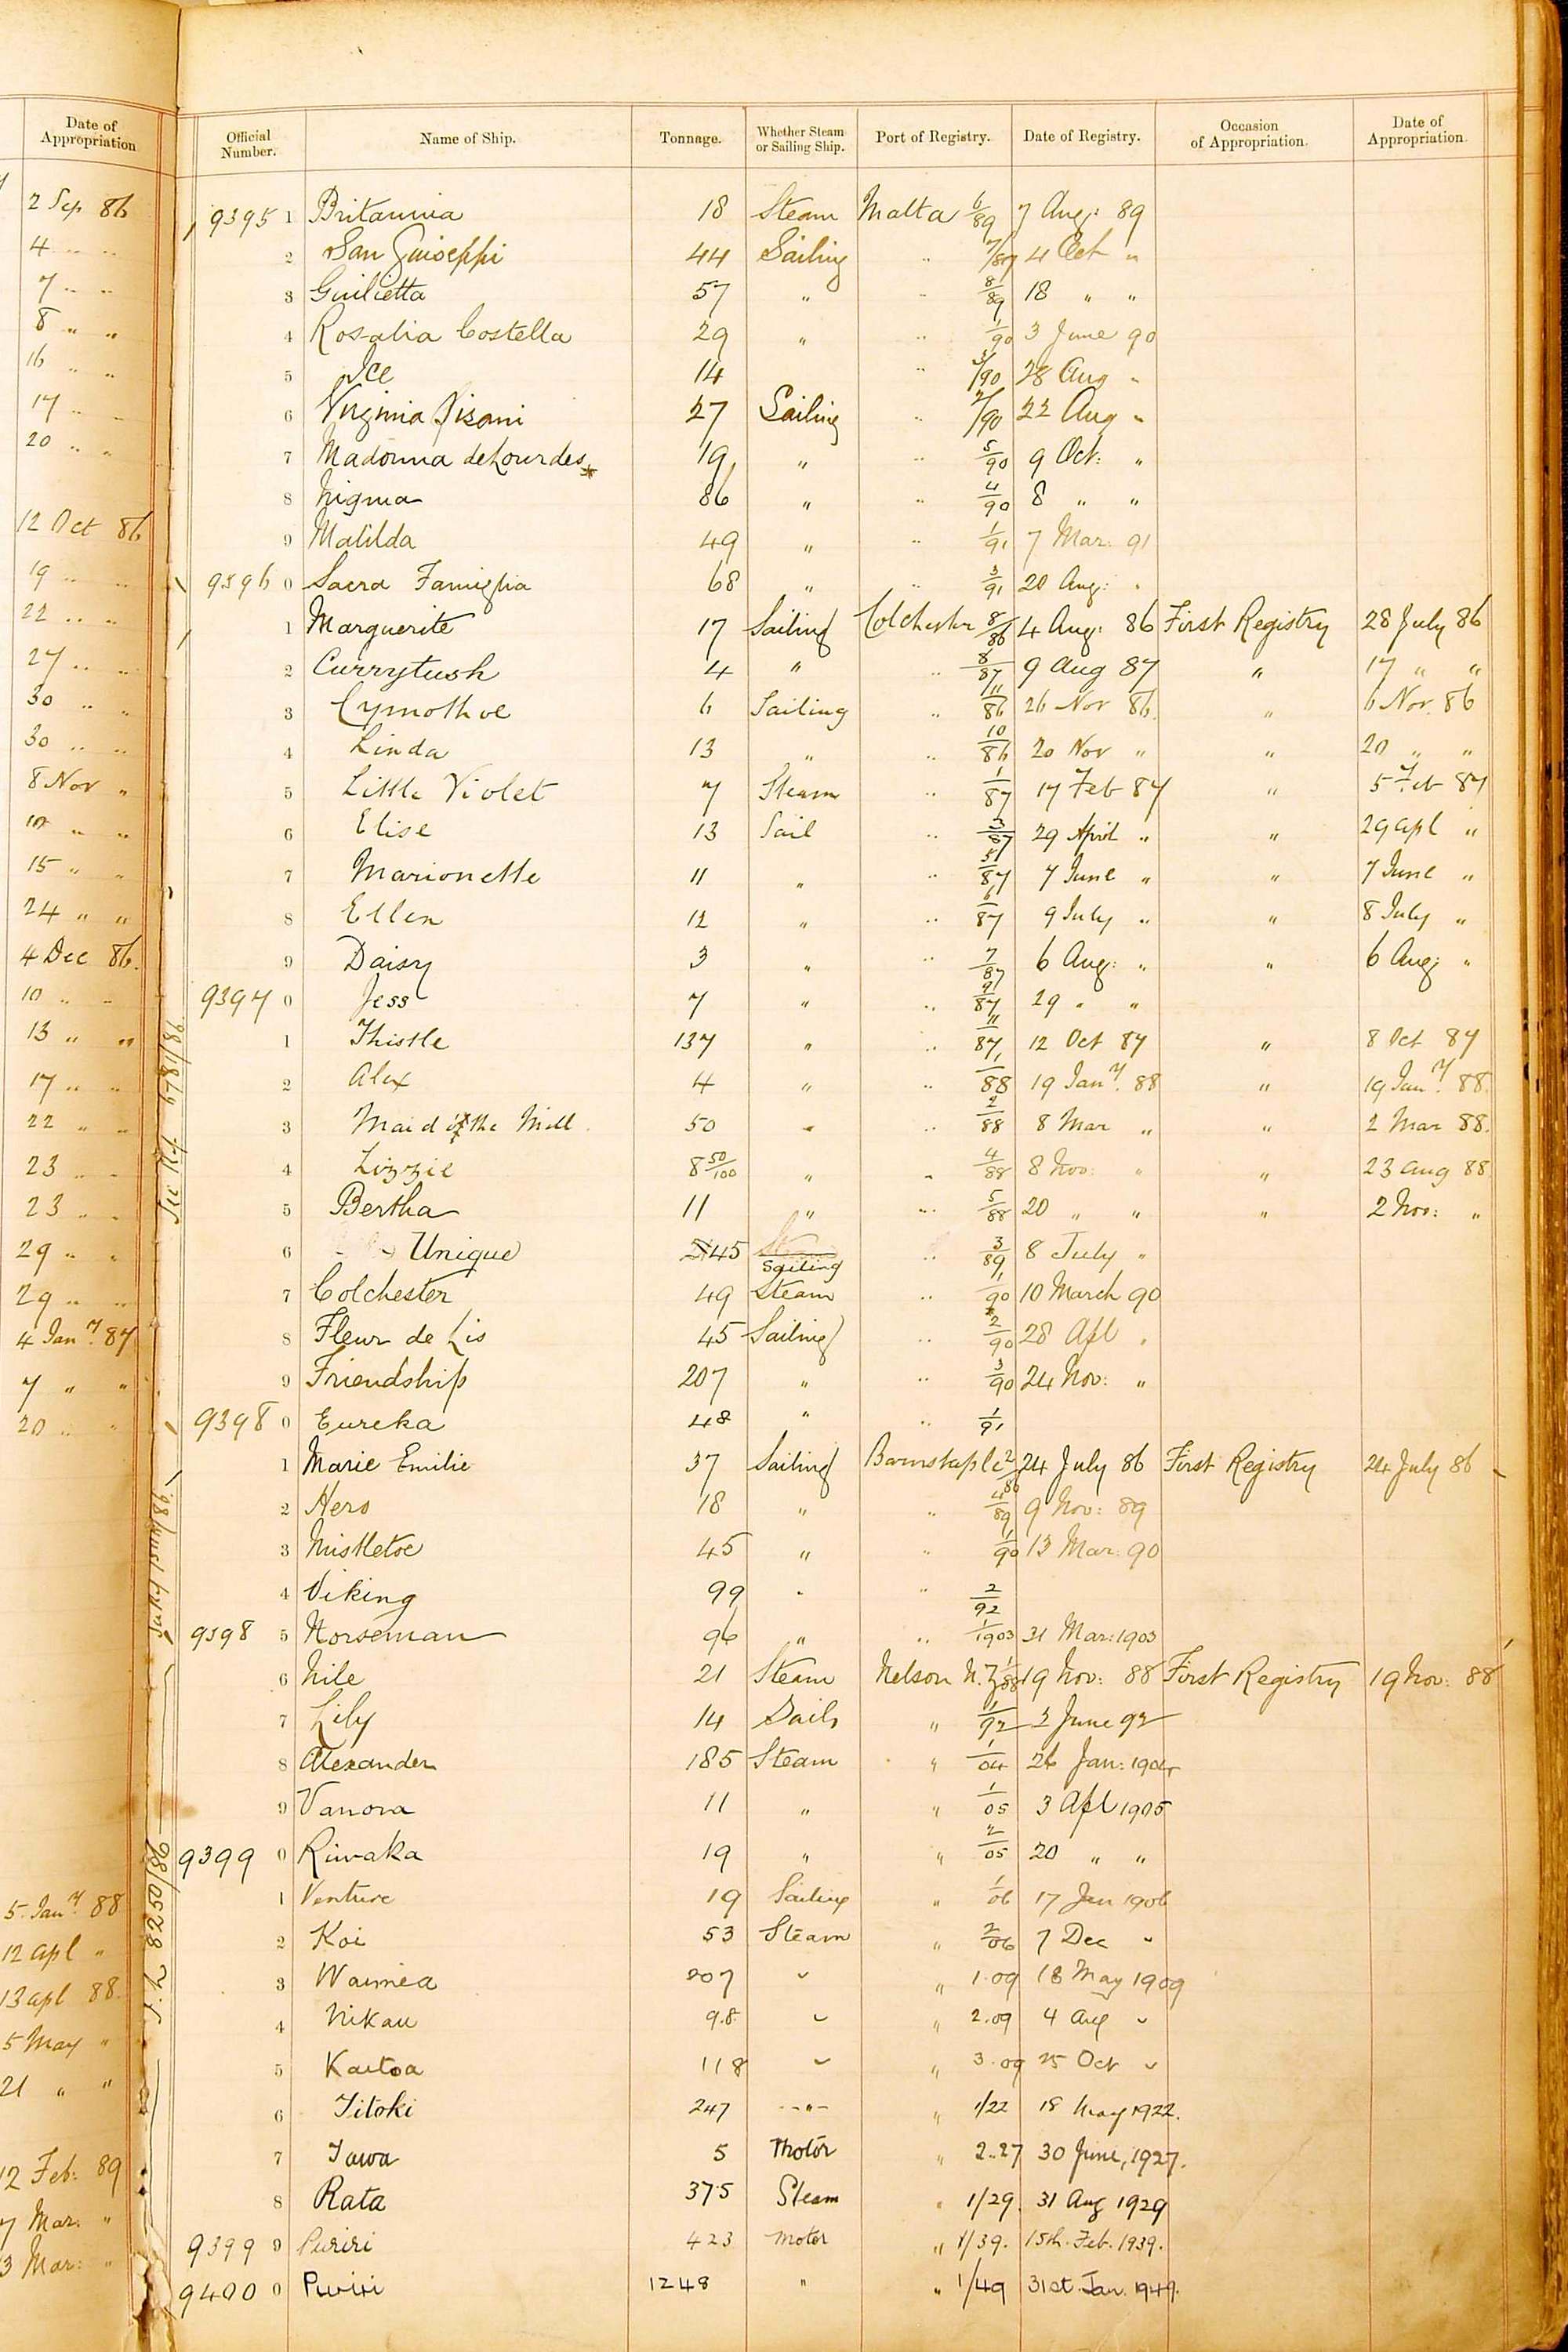 Date of Appropriation
2 Sep 86
4 " "
7 " "
8 " "
16 " "
17 " "
20 " "
12 Oct 86
19 " "
22 " "
27 " "
30 " "
30 " "
8 Nov "
10 " "
15 " "
24 " "
4 Dec 86.
10 " "
13 " "
17 " "
22 " "
23 " "
23 " "
29 " "
29 " "
4 Jany. 87
7 " "
20 " "
5 Jany. 88
12 apl "
13 apl 88.
5 May "
21 " "
12 Feb: 89
7 Mar. "
3 Mar: "
Official Number. Name of Ship. Tonnage. Whether Steam or Sailing Ship. Port of Registry. Date of Registry. Occasion of Appropriation. Date of Appropriation.
9395 1 Britannia 18 Steam Malta 6/89 7 Aug: 89
2 San Guiseppi 44 Sailing " 7/89 4 Oct "
3 Giulietta 57 " " 8/89 18 " "
4 Rosalia Costella 29 " " 1/90 3 June 90
5 Ice 14 " 3/90 28 Aug "
6 Virginia Pisani 27 Sailing " 2/90 22 Aug "
7 Madonna de Lourdes 19 " " 5/90 9 Oct: "
8 Nigma 86 " " 4/90 8 " "
9 Matilda 49 " " 1/91 7 Mar: 91
9396 0 Sacra Famiglia 68 " " 3/91 20 Aug: "
1 Marguerite 17 Sailing Colchester 8/86 4 Aug: 86 First Registry 28 July 86
2 Currytush 4 " " 8/87 9 Aug 87 " 17 " "
3 Cymothoe 6 Sailing " 11/86 26 Nov 86. " 6 Nov. 86
4 Linda 13 " " 10/86 20 Nov " " 20 " "
5 Little Violet 7 Steam " 1/87 17 Feb 87 " 5 Feb 87
6 Elise 13 Sail " 3/87 29 April " " 29 apl "
7 Marionette 11 " " 5/87 7 June " " 7 June "
8 Ellen 12 " " 6/87 9 July " " 8 July "
9 Daisy 3 " " 7/87 6 Aug: " " 6 Aug: "
9397 0 Jess 7 " " 9/87 29 " "
1 Thistle 137 " " 11/87 12 Oct 87 " 8 Oct 87
2 Alex 4 " " 1/88 19 Jany. 88 " 19 Jany. 88.
3 Maid of the Mill 50 " " 2/88 8 Mar " " 2 Mar 88.
4 Lizzie 8 50/100 " " 4/88 8 Nov: " " 23 aug 88
5 Bertha 11 " " 5/88 20 " " " 2 Nov: "
6 Unique 45 Sailing " 3/89 8 July "
7 Colchester 49 Steam " 1/90 10 March 90
8 Fleur de Lis 45 Sailing " 2/90 28 Apl "
9 Friendship 207 " " 3/90 24 Nov: "
9398 0 Eureka 48 " " 1/91
1 Marie Emilie 37 Sailing Barnstaple 2/86 24 July 86 First Registry 24 July 86
2 Hero 18 " " 4/89 9 Nov: 89
3 Mistletoe 45 " " 1/90 13 Mar: 90
4 Viking 99 " " 2/92
9398 5 Norseman 96 " " 1/1903 31 Mar: 1903
6 Nile 21 Steam Nelson N.Z 1/88 19 Nov: 88 First Registry 19 Nov: 88
7 Lily 14 Sails " 1/92 2 June 92
8 Alexander 185 Steam " 1/04 26 Jan: 1904
9 Vanora 11 " " 1/05 3 Apl 1905
9399 0 Riwaka 19 " " 2/05 20 " "
1 Venture 19 Sailing " 1/06 17 Jan 1906
2 Koi 53 Steam " 2/06 7 Dec "
3 Waimea 207 " " 1.09 18 May 1909
4 Nikau 98 " " 2.09 4 Aug "
5 Kaitoa 118 " " 3.09 25 Oct "
6 Titoki 247 " " 1/22 18 May 1922.
7 Tawa 5 Motor " 2.27 30 June, 1927.
8 Rata 375 Steam " 1/29. 31 Aug 1929
9399 9 Puriri 423 motor " 1/39. 15th. Feb. 1939.
9400 0 Puriri 1248 " " 1/49 31st. Jan. 1949.